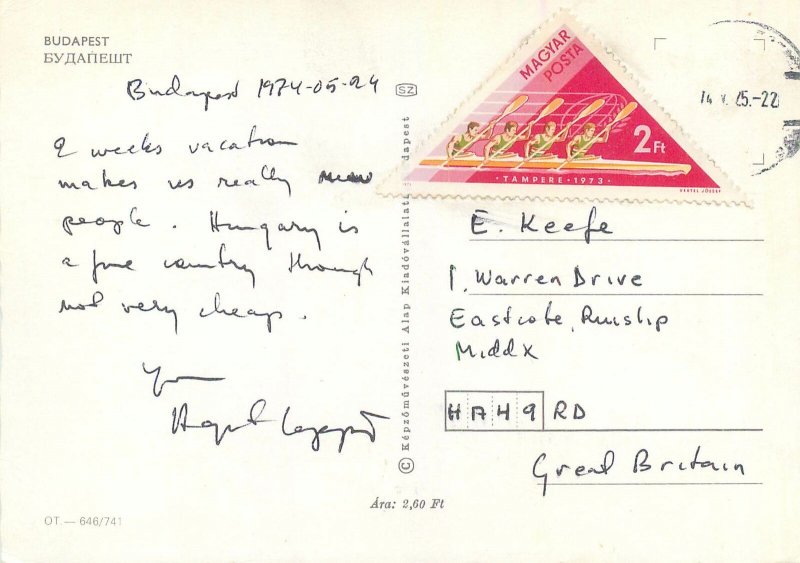 BUDAPEST
БУДАПЕШТ
Budapest 1974-05-24
2 weeks vacation
makes us really new
people. Hungary is
a fine country though
not very cheap.
OT. — 646/741
SZ
© Képzőművészeti Alap Kiadóvállalata, Budapest
Ára: 2,60 Ft
MAGYAR
POSTA
2 Ft
· TAMPERE · 1973 ·
VERTEL JÓZSEF
74 V. 25.-22
E. Keefe
1, Warren Drive
Eastcote, Ruislip
Middx
HA49RD
Great Britain